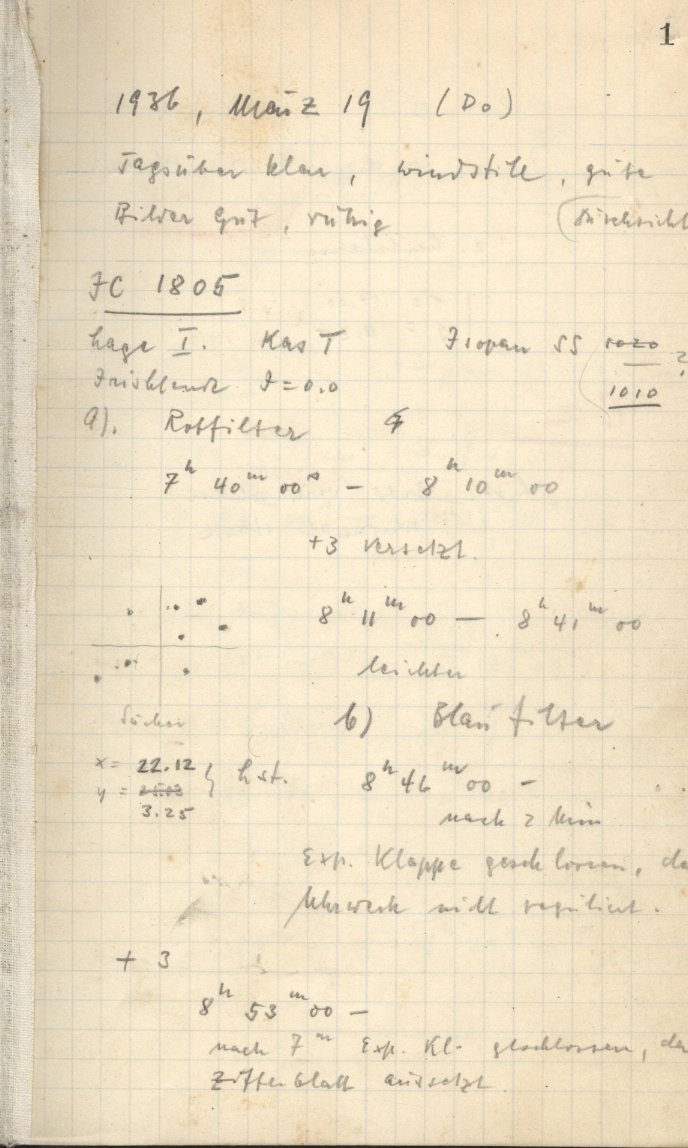 1
1936, März 19 (Do)
Tagsüber klar, windstill, gute
Bilder gut, ruhig (Durchsicht
IC 1805
Lage I. Kas T Isopan SS 1020 ?
1010
Irisblende I=0.0
a). Rotfilter
7h 40m 00s — 8h 10m 00
+3 versetzt.
8h 11m 00 — 8h 41m 00
leichter
Sucher
b) Blaufilter
x = 22.12
y =
3.25
8h 46m 00 —
nach 2 Min
Exp. Klappe geschlossen, da
Uhrwerk nicht reguliert.
+ 3
8h 53m 00 —
nach 7m Exp. Kl. geschlossen, da
Zifferblatt aussetzt.